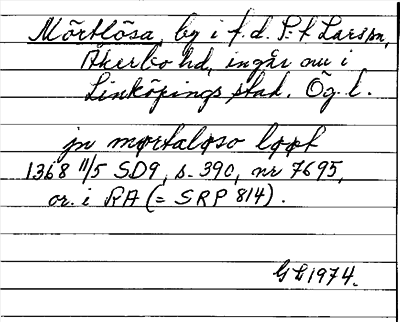 Mörtlösa, by i f.d. S:t Larssn,
Åkerbo hd, ingår nu i
Linköpings stad. Ög. l.
jn mørtaløso loot
1368 11/5 SD9, s. 390, nr 7695,
or. i RA (= SRP 814).
GL 1974.